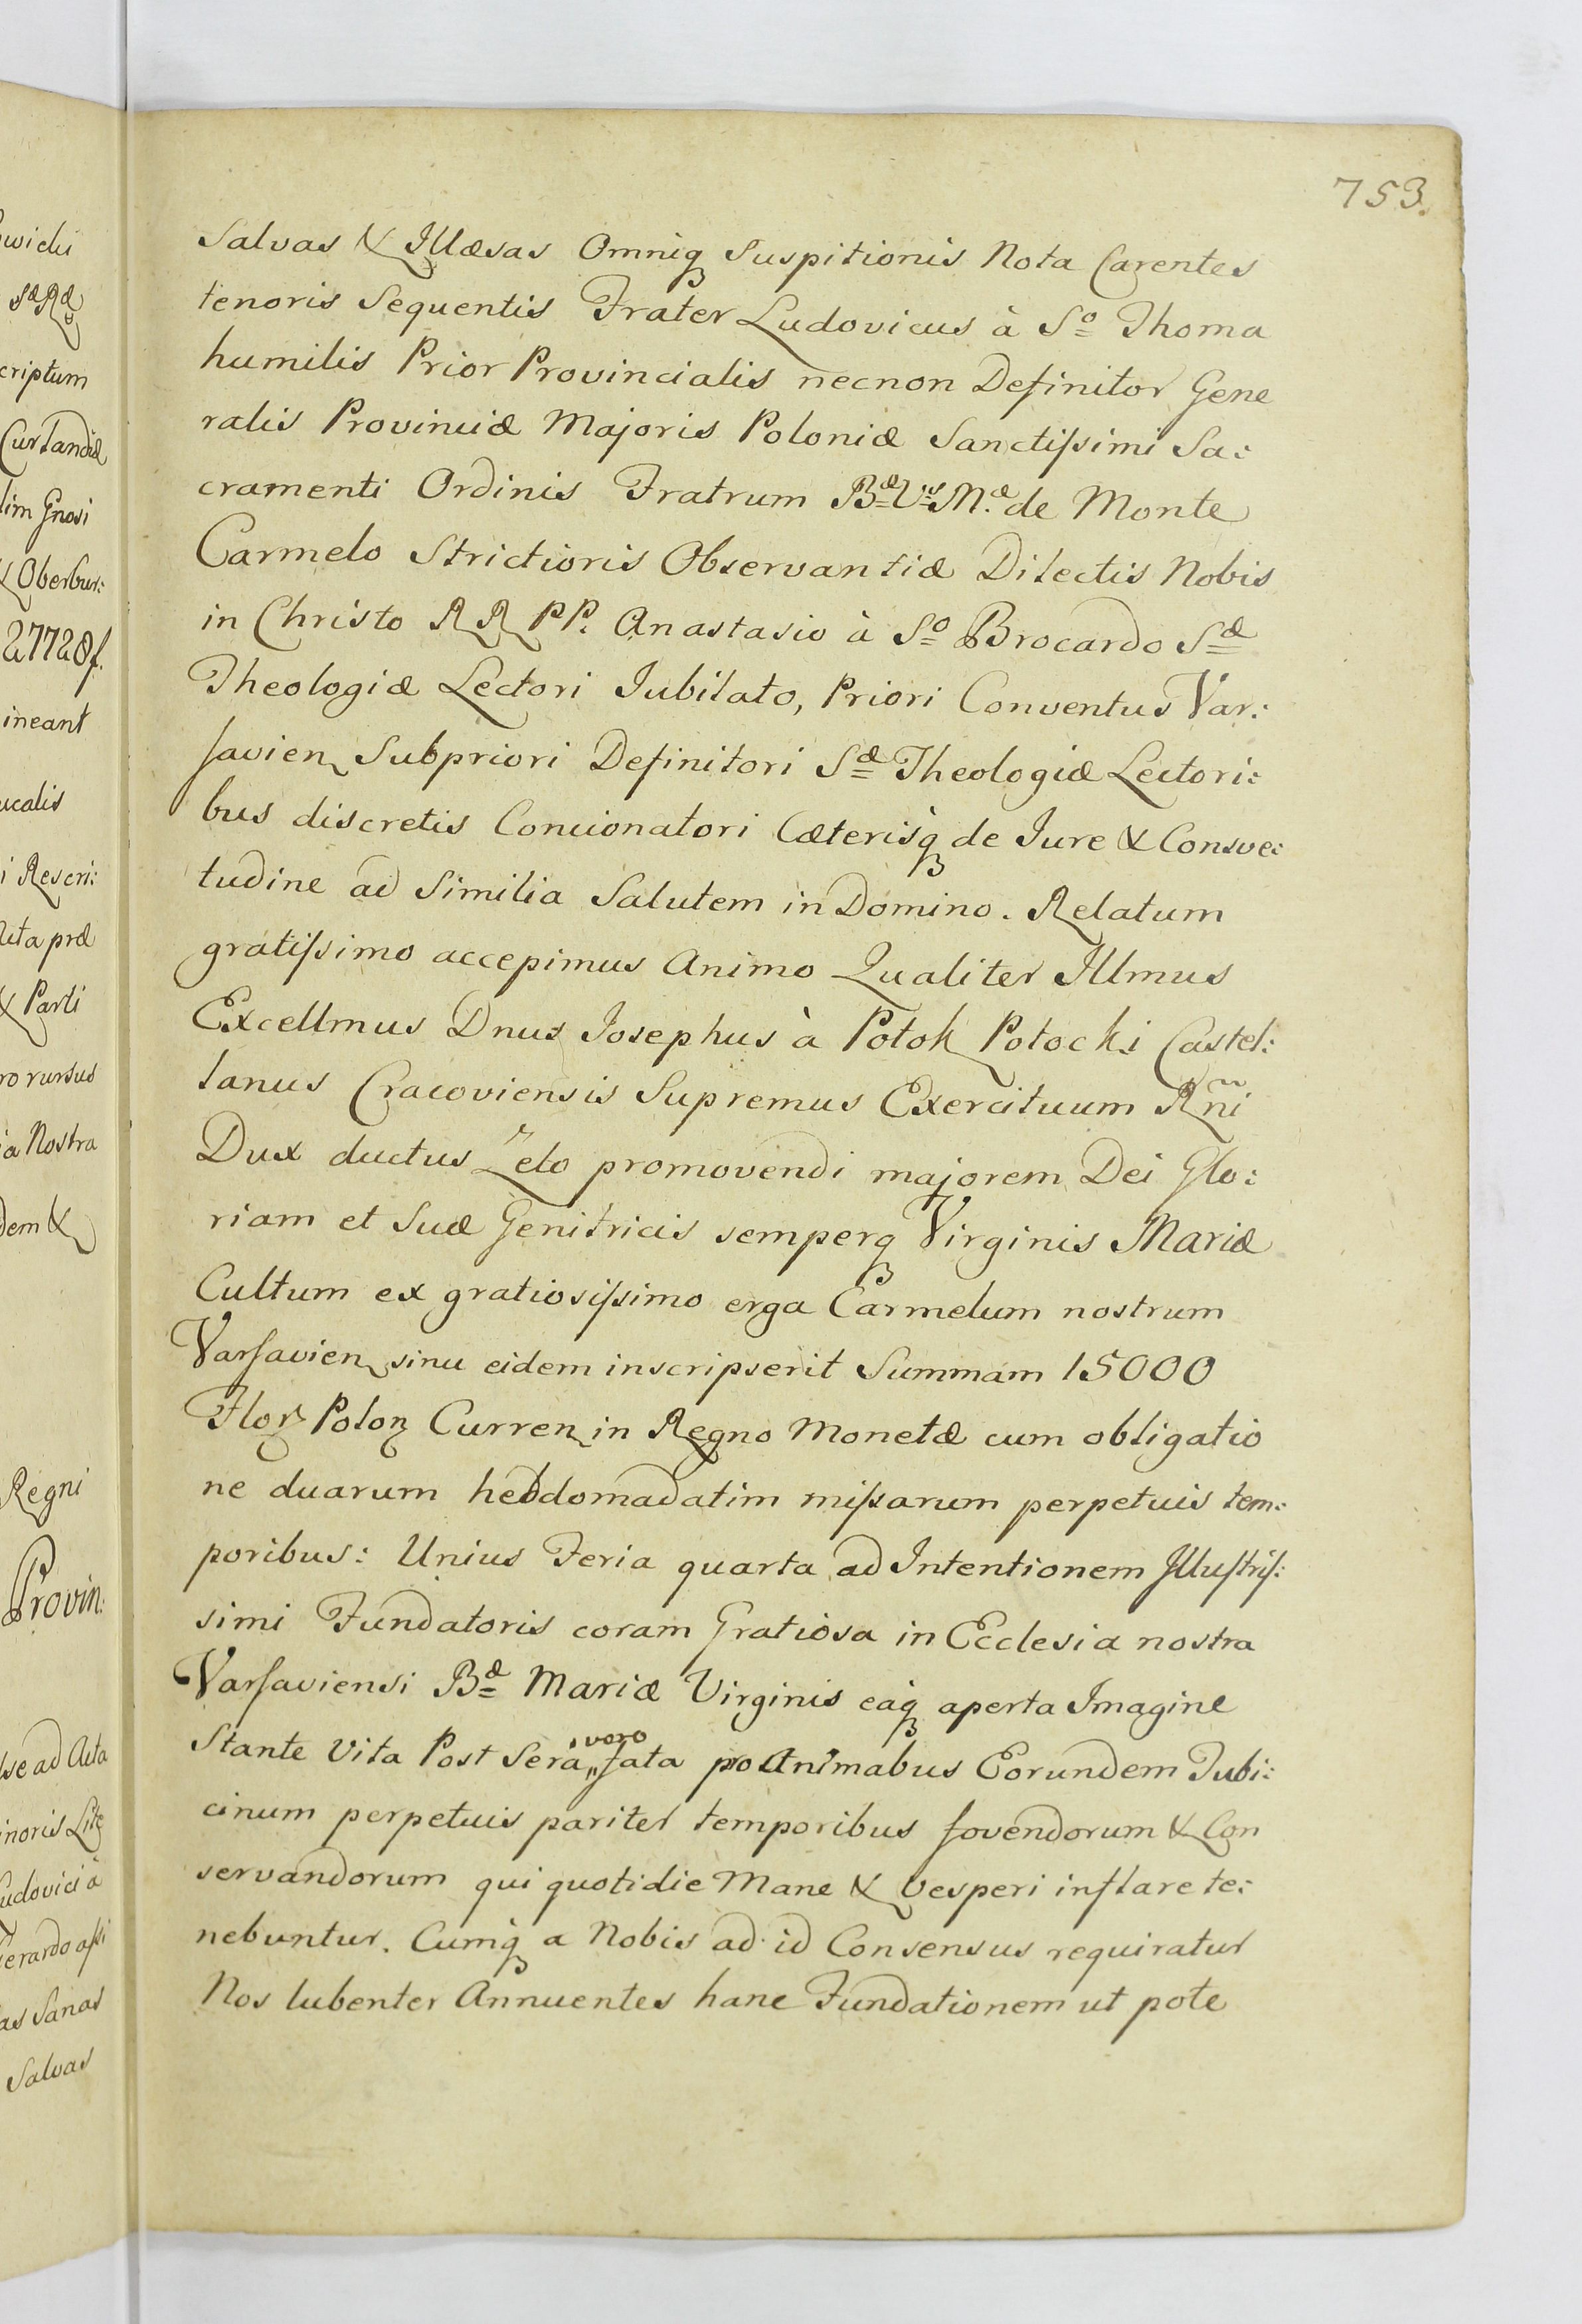 753.
Salvas & Illæsas Omniq Suspitionis Nota Carentes
tenoris Sequentis Frater Ludovicus à So Thoma
humilis Prior Provincialis necnon Definitor Gene
ralis Provinciæ Majoris Poloniæ Sanctissimi Sa:
cramenti Ordinis Fratrum Bæ Vis Mæ de Monte
Carmelo Strictioris Observantiæ Dilectis Nobis
in Christo RR PP. Anastasio à So Brocardo Sæ
Theologiæ Lectori Iubilato, Priori Conventus Var:
savien Subpriori Definitori Sæ Theologiæ Lectori:
bus discretis Concionatori Cæterisq de Iure & Consve:
tudine ad Similia Salutem in Domino. Relatum
gratissimo accepimus Animo Qualiter Illmus
Excellmus Dnus Iosephus à Potok Potocki Castel:
lanus Cracoviensis Supremus Exercituum Rñi
Dux ductus Zelo promovendi majorem Dei Glo:
riam et Suæ Genitricis semperq Virginis Mariæ
Cultum ex gratiosissimo erga Carmelum nostrum
Varsavien sinu eidem inscripserit Summam 15000
Flor Polon Curren in Regno Monetæ cum obligatio
ne duarum hebdomadatim missarum perpetuis tem:
poribus: Unius Feria quarta ad Intentionem Illustris:
simi Fundatoris coram Gratiosa in Ecclesia nostra
Varsaviensi Bæ Mariæ Virginis eaq aperta Imagine
Stante Vita Post Sera vero fata pro Animabus Eorundem Tubi:
cinum perpetuis pariter temporibus fovendorum & Con
servandorum qui quotidie Mane & Vesperi inflare te:
nebuntur. Cumq a Nobis ad id Consensus requiratur
Nos lubenter Annuentes hanc Fundationem ut pote
widii
criptum
Curlandiæ
lim Gnosi
& Oberbur:
27728f.
ineant
ucalis
i Rescri:
Acta præ
& Parti
ro rursus
ia Nostra
dem &
Regni
Provin:
se ad Acta
inoris Lite
Ludovici à
Gerardo assi
as Sanas
Salvas